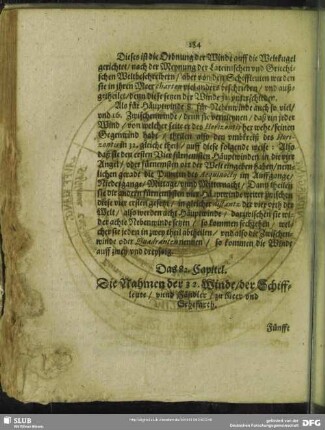 184
Dieses ist die Ordnung der Winde auff die Weltkugel
gerichtet / nach der Meynung der Lateinischen vnd Griechi-
schen Weltbeschreibern / aber von den Schiffleuten werden
sie in ihren Meer charten viel anders beschrieben / vnd auß-
getheilet / denn diese setzen der Winde 32. vnterschieden.
Als für Häuptwinde 8. für Nebenwinde auch so viel /
vnd 16. Zwischenwinde / denn sie vermeynen / daß ein jeder
Wind / von welcher seite er des Horizonts her wehe / seinen
Gegenwind hab / theilen also den vmbkreiß des Hori-
zonts in 32. gleiche theil / auff diese folgende weise: Also
daß sie den ersten Vier fürnemsten Häuptwinden in die vier
Angel / oder fürnemsten ort der Welt eingeben haben / nem-
lichen gerade die Puncten des Aequinoctij im Auffgange /
Niedergange / Mittage / vnd Mitternacht / Dann theilen
sie die andern fürnemsten vier Winde / welche sie zwischen
diese vier ersten gesetzt / in gleicher distantz der vier orth der
Welt / also werden acht Häuptwinde / darzwischen sie wi-
der achte Nebenwinde setzen / so kommen sechzehen / wel-
cher sie jeden in zwey theil abtheilen / vnd also die Zwischen-
winde oder Quadranten nennen / so kommen die Winde
auff zwey vnd dreyssig.
Das 82. Capitel.
Die Nahmen der 32. Winde / der Schiff-
leute / vnnd Händler / zu Meer vnd
Schiffarth.
Fünffe
SLUB
Wir führen Wissen.
gefördert von der
Deutschen Forschungsgemeinschaft
DFG